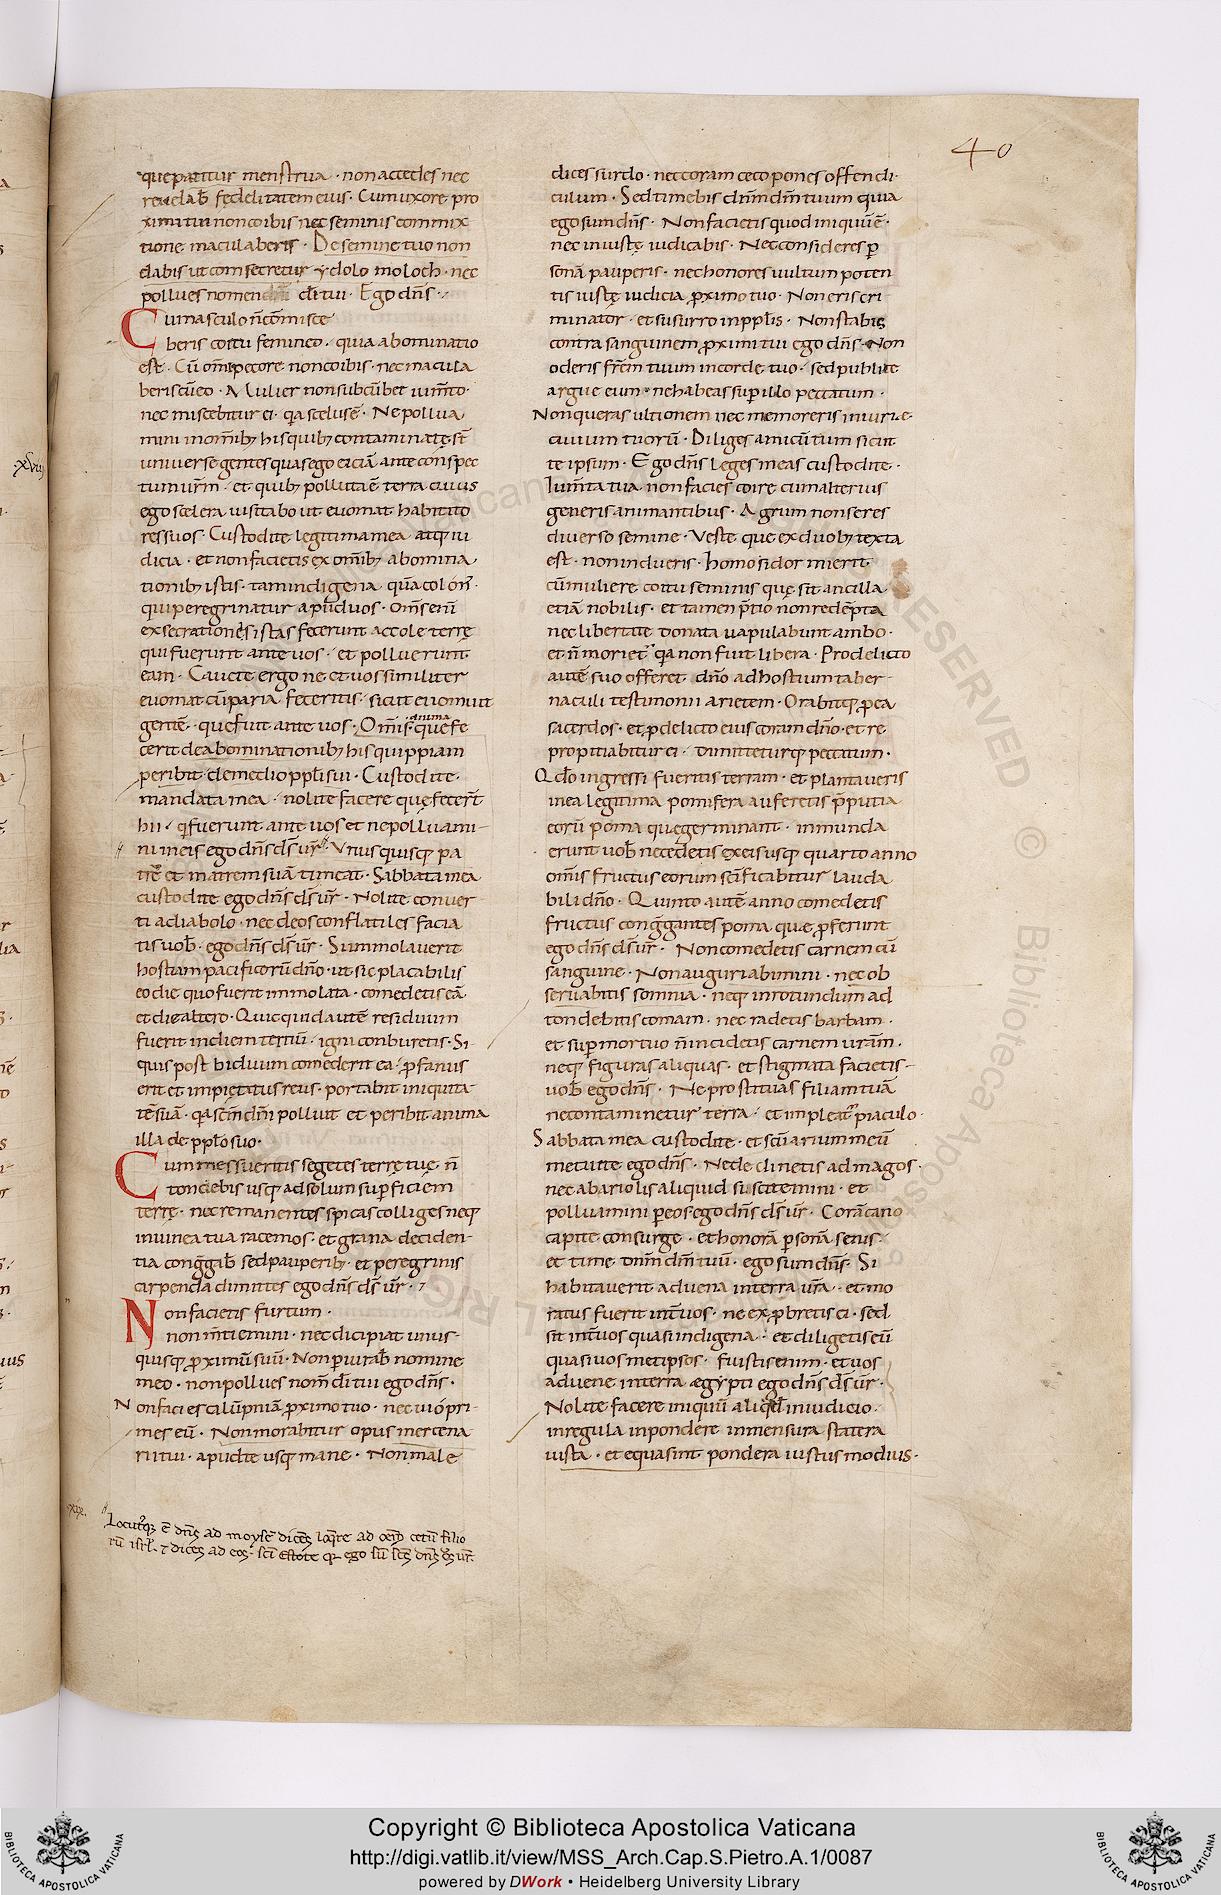 40
que patitur menstrua · non accedes nec
reuelab̄ fędeditatem eius · Cum uxore pro
ximi tui non coibis nec seminis commix
tione maculaberis · De semine tuo non
dabis ut consecretur ydolo moloch · nec
pollues nomen dī tui · Ego dn̄s ·
Cum masculo n̄ cōmisce
beris coitu femineo · quia abominatio
est · Cū om̄i pecore non coibis · nec macula
beris cū eo · Mulier non subcūbet ium̄to ·
nec miscebitur ei · q̄a scelus ē · Ne pollua
mini in om̄ibꝫ his quibꝫ contaminatę st̄
uniuerse gentes quas ego eiciā ante conspec
tum ur̄m · et quibꝫ polluta ē terra cuius
ego scelera uisitabo ut euomat habitato
res suos · Custodite legitima mea atqꝫ iu
dicia · et non facietis ex om̄ibꝫ abomina
tionibꝫ istis · tam indigena quā colon̄ ·
qui peregrinatur apud uos · Om̄s enī
exsecrationes istas fecerunt accole terrę
qui fuerunt ante uos · et polluerunt
eam · Cauete ergo ne et uos similiter
euomat cū paria feceritis · sicut euomuit
gentē · que fuit ante uos · Om̄is anima que fe
cerit de abominationibꝫ his quippiam
peribit de medio pp̄li sui · Custodite
mandata mea · nolite facere que fecer̄t
hii · q̄ fuerunt ante uos et ne polluami
ni in eis ego dn̄s ds̄ ur̄ · Unusquisqꝫ pa
trē et matrem suā timeat · Sabbata mea
custodite ego dn̄s ds̄ ur̄ · Nolite conuer
ti ad iabolo · nec deos conflatiles facia
tis uob̄ · ego dn̄s ds̄ ur̄ · Si immolauerit
hostiam pacificorū dn̄o · ut sic placabilis
eo die quo fuerit immolata · comedetis eā
et die altero · Quicquid autē residuum
fuerit in diem tertiū · igni conburetis · Si
quis post biduum comederit ea · ꝓfanus
erit et impietatus reus · portabit iniquita
tē suā · q̄a sc̄m dn̄i polluit et peribit anima
illa de pp̄lo suo ·
Cum messueritis segetes terrę tuę n̄
tondebis usqꝫ ad solum superficiem
terrę · nec remanentes spicas colliges neqꝫ
in uinea tua racemos · et grana deciden
tia cong̅gab̄ sed pauperibꝫ · et peregrinis
carpenda dimittes ego dn̄s ds̄ ur̄ ·
Non facietis furtum ·
non m̄tiemini · nec dicipiat unus
quisqꝫ ꝓximū suū · Non periurab̄ nomine
meo · non pollues nom̄ dī tui ego dn̄s ·
Non facies calūpniā ꝓximo tuo · nec ui opri
mes eū · Non morabitur opus mercena
rii tui · apud te usqꝫ mane · Non male
dices surdo · nec coram ceco pones offendi
culum · Sed timebis dn̄m dm̄ tuum quia
ego sum dn̄s · Non facietis quod iniquū ē ·
nec iniustę iudicabis · Nec consideres ꝑ
sonā pauperis · nec honores uultum poten
tis iustę iudicia ꝓximo tuo · Non eris cri
minator · et susurro in pp̄lis · Non stabis
contra sanguinem ꝓximi tui ego dn̄s · Non
oderis fr̄em tuum in corde tuo · sed publice
argue eum · ne habeas suꝑ illo peccatum ·
Non queras ultionem nec memoreris iniurie
ciuium tuorū · Diliges amicū tuum sicut
te ipsum · Ego dn̄s leges meas custodite ·
Ium̄ta tua non facies coire cum alterius
generis animantibus · Agrum non seres
diuerso semine · Veste que ex duobꝫ texta
est · non indueris · homo si dormierit
cū muliere coitu seminis quę sit ancilla
etiā nobilis · et tamen p̄tio non redēpta
nec libertate donata uapulabunt ambo ·
et n̄ moriet̄ q̄a non fuit libera · Pro delicto
autē suo offeret dn̄o ad hostium taber
naculi testimonii arietem · Orabitqꝫ ꝓ ea
sacerdos · et ꝓ delicto eius coram dn̄o · et re
propitiabitur ei · dimitteturqꝫ peccatum ·
Qdo ingressi fueritis terram · et plantaueris
in ea legitima pomifera auferetis p̄putia
eorū poma que germinant · inmunda
erunt uob̄ nec edetis ex eis usqꝫ quarto anno
om̄is fructus eorum sc̄ificabitur lauda
bili dn̄o · Quinto autē anno comedetis
fructus cong̅gantes poma quæ ꝓferunt
ego dn̄s ds̄ ur̄ · Non comedetis carnem cū
sanguine · Non auguriabimini · nec ob
seruabitis somnia · neqꝫ in rotundum ad
tondebitis comam · nec radetis barbam ·
et suꝑ mortuo n̄ incidetis carnem urām ·
neqꝫ figuras aliquas · et stigmata facietis
uob̄ ego dn̄s · Ne prostituas filiam tuā
ne contaminetur terra · et impleat̄ piaculo ·
Sabbata mea custodite · et sc̄uarium meū
metuite ego dn̄s · Ne declinetis ad magos ·
nec ab ariolis aliquid suscitemini · et
polluamini ꝑ eos · ego dn̄s ds̄ ur̄ · Corā cano
capite consurge · et honorā ꝑsonā senis
et time dn̄m dm̄ tuū · ego sum dn̄s · Si
habitauerit aduena in terra ur̄a · et mo
ratus fuerit int̄ uos · ne exꝓbretis ei · sed
sit int̄ uos quasi indigena · et diligetis eū
quasi uosmetipsos · fuistis enim · et uos
aduene in terra ægypti ego dn̄s ds̄ ur̄ ·
Nolite facere iniquū aliqd̄ in iudicio ·
in regula in pondere in mensura statera
iusta · et equa sint pondera iustus modius ·
xix.
Locut̄qꝫ ē dn̄s ad moysē dicēs loq̄re ad oēm cetū filio
rū isrl̄ · ⁊ dices ad eos · sc̄i estote q̄ ego sū sc̄s dn̄s ds̄ ur̄
·xviii
Copyright © Biblioteca Apostolica Vaticana
http://digi.vatlib.it/view/MSS_Arch.Cap.S.Pietro.A.1/0087
powered by DWork • Heidelberg University Library
BIBLIOTECA APOSTOLICA VATICANA
BIBLIOTECA APOSTOLICA VATICANA